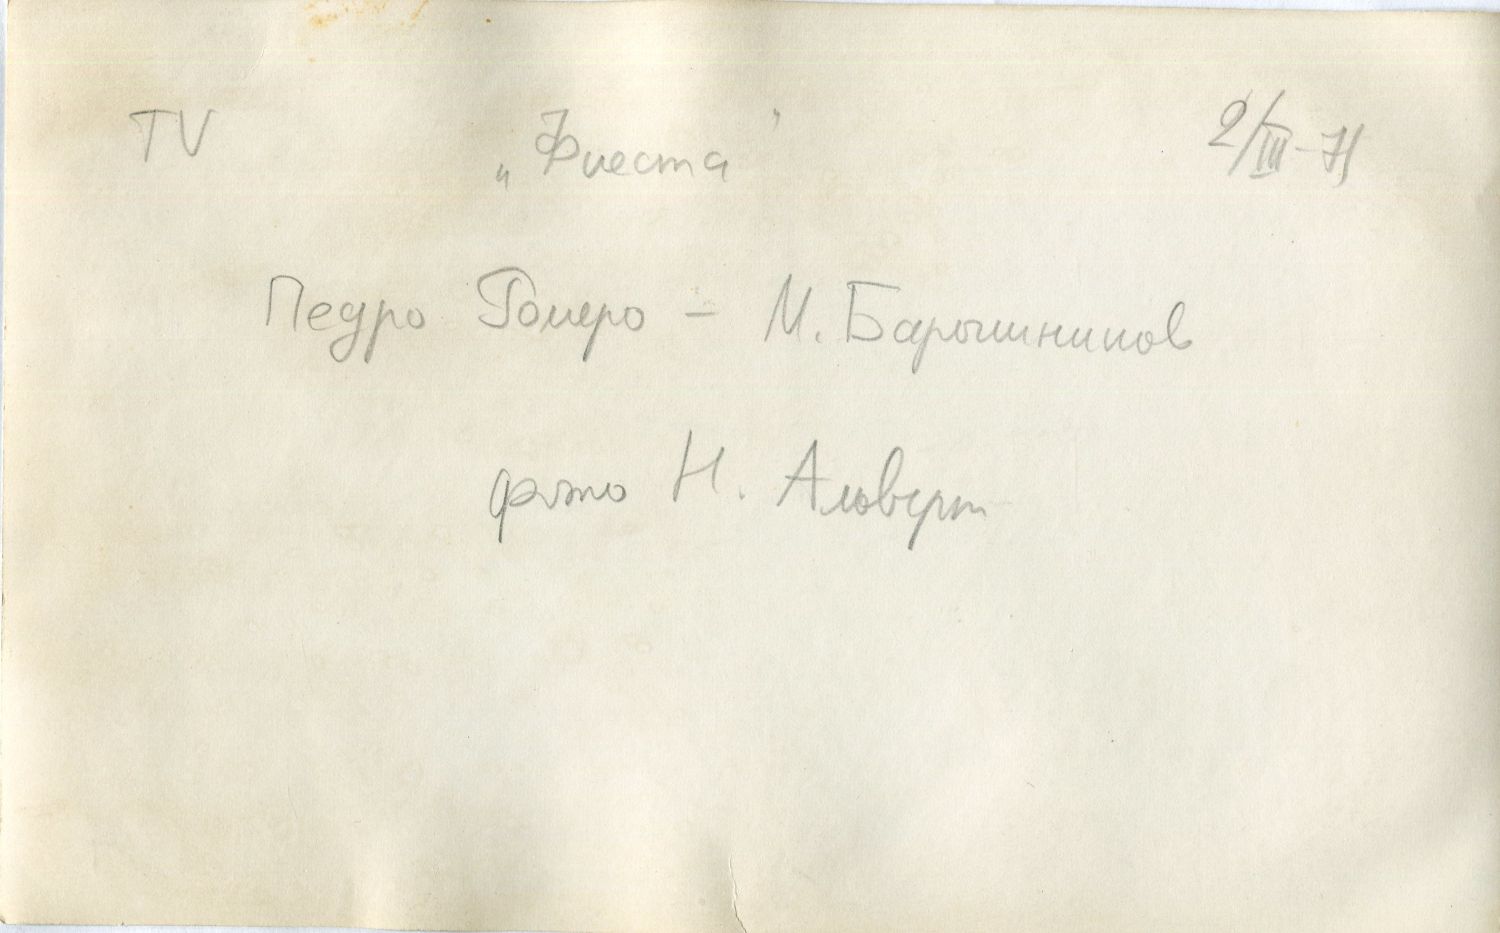 TV „Фиеста" 2/III-71
Педро Ромеро - М. Барышников
фото Н. Альверт